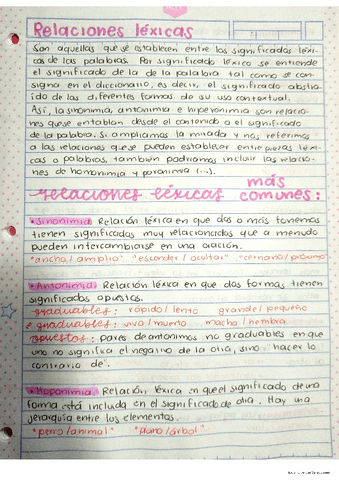 Relaciones léxicas
Son aquellas que se establecen entre los significados léxi-
cos de las palabras. Por significado léxico se entiende
el significado de la de la palabra tal como se con-
signa en el diccionario, es decir, el significado abstraí-
do de las diferentes formas de su uso contextual.
Así, la sinonimia, antonimia e hiperonimia son relacio-
nes que se entablan desde el contenido o el significado
de la palabra. Si ampliamos la mirada y nos referimos
a las relaciones que se pueden establecer entre piezas léxi-
cas o palabras, también podríamos incluir las relacio-
nes de homonimia y paronimia (...).
relaciones léxicas más
comunes:
• Sinonimia: Relación léxica en que dos o más lexemas
tienen significados muy relacionados que a menudo
pueden intercambiarse en una oración.
"ancho/amplio" "esconder/ocultar" "cercano/próximo"
• Antonimia: Relación léxica en que dos formas tienen
significados opuestos.
graduables: rápido/lento grande/pequeño
graduables: vivo/muerto macho/hembra
opuestos: pares de antónimos no graduables en que
uno no significa el negativo de la otra, sino "hacer lo
contrario de".
• Hiponimia: Relación léxica en que el significado de una
forma está incluida en el significado de otra. Hay una
jerarquía entre los elementos.
"perro/animal" /árbol"